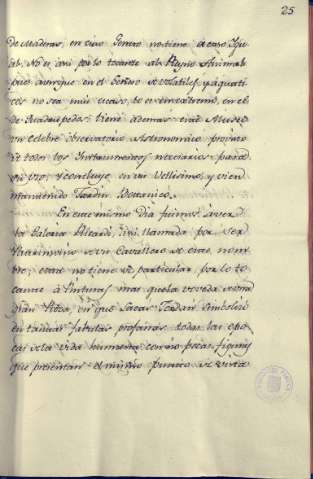 25
de Maderas, en cuio Genero no tiene acaso Igu
al. No es asi por lo tocante al Reyno Animal
pues aunque en el Genero de Volatiles, y aquati
cos no sea mui escaso, lo es en extremo, en el
de Quadrupedos: tiene ademas este Museo
un celebre observatorio Astronomico provisto
de todos los Instrumentos necesarios para
su uso, y concluye en un bellisimo, y bien
mantenido Jardin Bottanico.
En este mismo Dia fuimos à ver
la Galeria Ricardi, assi llamada por ser
Patrimonio de un Cavallero de este nom
bre; esta no tiene de particular por lo to
cante à Pinturas mas que la voveda de una
gran Pieza, en que Lucas Jordan simbolizó
en varias fabulas profanas todas las epo
cas de la vida humana con no pocas figuras
que presentan el mismo punto de vista